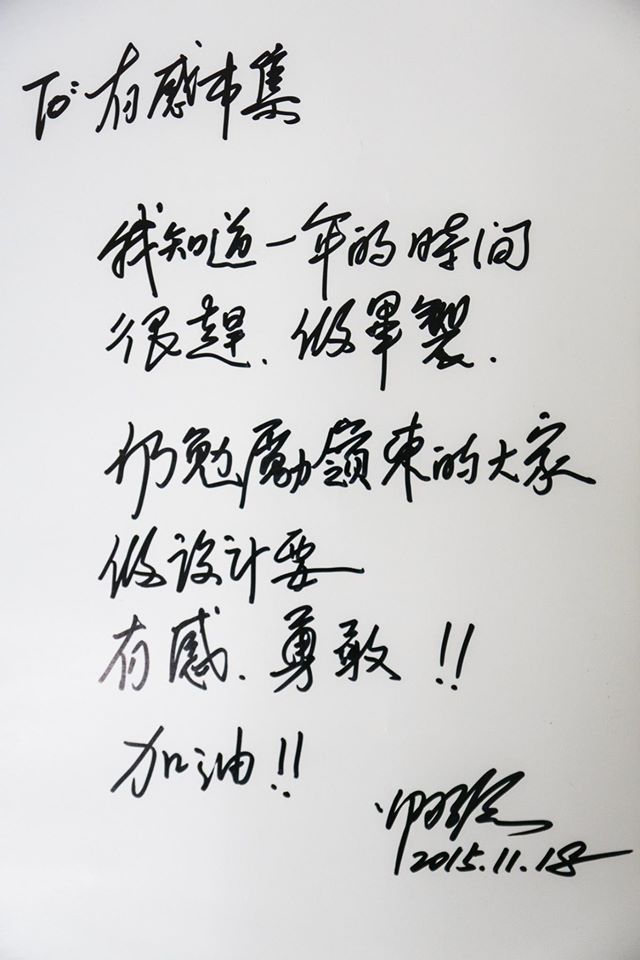 To: 有感市集
我知道一年的時間
很趕.做畢製.
仍勉勵嶺東的大家
做設计要
有感.勇敢!!
加油!!
2015.11.18